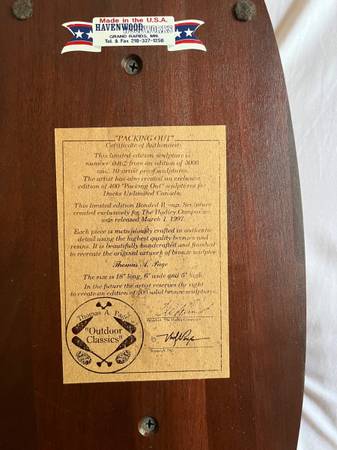 Made in the U.S.A.
HAVENWOOD WOODWORKS
GRAND RAPIDS, MN.
Tel. & Fax 218-327-1258
"PACKING OUT"
Certificate of Authenticity
This limited edition sculpture is
number from an edition of 3000
and 10 artist proof sculptures.
The artist has also created an exclusive
edition of 400 "Packing Out" sculptures for
Ducks Unlimited Canada.
This limited edition Bonded Bronze Sculpture
created exclusively for The Hadley Companies
was released March 1, 1997.
Each piece is meticulously crafted in authentic
detail using the highest quality bronzes and
resins. It is beautifully handcrafted and finished
to recreate the original artwork of bronze sculptor
Thomas A. Page
The size is 18" long, 6" wide and 6" high.
In the future the artist reserves the right
to create an edition of solid bronze sculptures.
Thomas A. Page
"Outdoor
Classics"